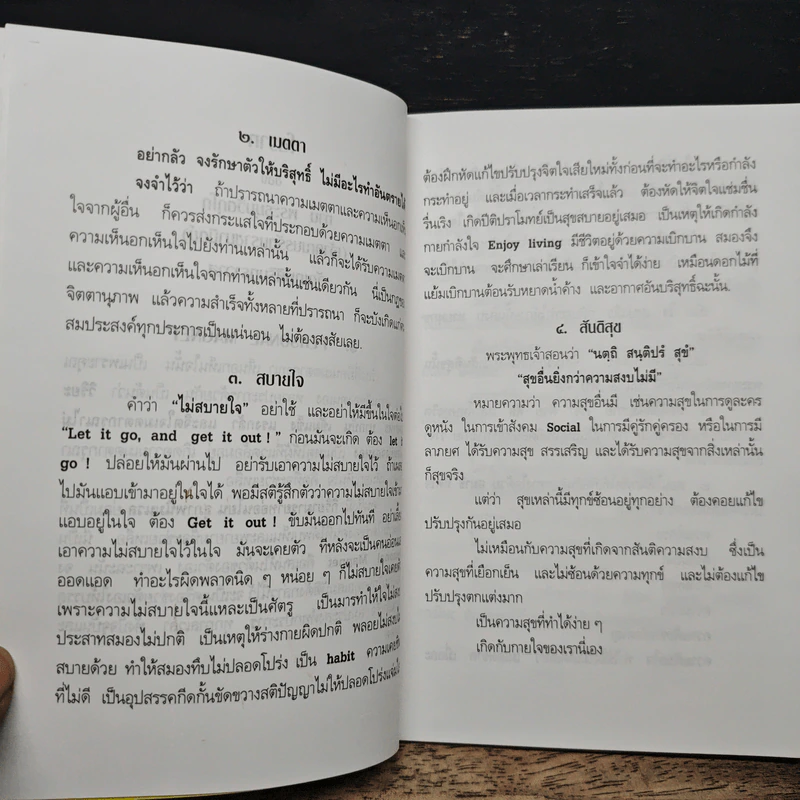 ๒. เมตตา
อย่ากลัว จงรักษาตัวให้บริสุทธิ์ ไม่มีอะไรทำอันตรายได้
จงจำไว้ว่า ถ้าปรารถนาความเมตตาและความเห็นอกเห็น
ใจจากผู้อื่น ก็ควรส่งกระแสใจที่ประกอบด้วยความเมตตา และ
ความเห็นอกเห็นใจไปยังท่านเหล่านั้น แล้วก็จะได้รับความเมตตา
และความเห็นอกเห็นใจจากท่านเหล่านั้นเช่นเดียวกัน นี่เป็นกฎของ
จิตตานุภาพ แล้วความสำเร็จทั้งหลายที่ปรารถนา ก็จะบังเกิดแก่
สมประสงค์ทุกประการเป็นแน่นอน ไม่ต้องสงสัยเลย.
๓. สบายใจ
คำว่า “ไม่สบายใจ” อย่าใช้ และอย่าให้มีขึ้นในใจต่อไป
“Let it go, and get it out!” ก่อนมันจะเกิด ต้อง let it
go! ปล่อยให้มันผ่านไป อย่ารับเอาความไม่สบายใจไว้ ถ้าเผลอ
ไปมันแอบเข้ามาอยู่ในใจได้ พอมีสติรู้สึกตัวว่าความไม่สบายใจเข้ามา
แอบอยู่ในใจ ต้อง Get it out! ขับมันออกไปทันที อย่าเลี้ยง
เอาความไม่สบายใจไว้ในใจ มันจะเคยตัว ทีหลังจะเป็นคนอ่อนแอ
ออดแอด ทำอะไรผิดพลาดนิด ๆ หน่อย ๆ ก็ไม่สบายใจเคยตัว
เพราะความไม่สบายใจนี้แหละเป็นศัตรู เป็นมารทำให้ใจไม่สงบ
ประสาทสมองไม่ปกติ เป็นเหตุให้ร่างกายผิดปกติ พลอยไม่สงบไม่
สบายด้วย ทำให้สมองทึบไม่ปลอดโปร่ง เป็น habit ความเคยชิน
ที่ไม่ดี เป็นอุปสรรคกีดกั้นขัดขวางสติปัญญาไม่ให้ปลอดโปร่งแจ่มใส
ต้องฝึกหัดแก้ไขปรับปรุงจิตใจเสียใหม่ทั้งก่อนที่จะทำอะไรหรือกำลัง
กระทำอยู่ และเมื่อเวลากระทำเสร็จแล้ว ต้องหัดให้จิตใจแช่มชื่น
รื่นเริง เกิดปีติปราโมทย์เป็นสุขสบายอยู่เสมอ เป็นเหตุให้เกิดกำลัง
กายกำลังใจ Enjoy living มีชีวิตอยู่ด้วยความเบิกบาน สมองจึง
จะเบิกบาน จะศึกษาเล่าเรียน ก็เข้าใจจำได้ง่าย เหมือนดอกไม้ที่
แย้มเบิกบานต้อนรับหยาดน้ำค้าง และอากาศอันบริสุทธิ์ฉะนั้น.
๔. สันติสุข
พระพุทธเจ้าสอนว่า “นตฺถิ สนฺติปรํ สุขํ”
“สุขอื่นยิ่งกว่าความสงบไม่มี”
หมายความว่า ความสุขอื่นมี เช่นความสุขในการดูละคร
ดูหนัง ในการเข้าสังคม Social ในการมีคู่รักคู่ครอง หรือในการมี
ลาภยศ ได้รับความสุข สรรเสริญ และได้รับความสุขจากสิ่งเหล่านั้น
ก็สุขจริง
แต่ว่า สุขเหล่านี้มีทุกข์ซ้อนอยู่ทุกอย่าง ต้องคอยแก้ไข
ปรับปรุงกันอยู่เสมอ
ไม่เหมือนกับความสุขที่เกิดจากสันติความสงบ ซึ่งเป็น
ความสุขที่เยือกเย็น และไม่ซ้อนด้วยความทุกข์ และไม่ต้องแก้ไข
ปรับปรุงตกแต่งมาก
เป็นความสุขที่ทำได้ง่าย ๆ
เกิดกับกายใจของเรานี่เอง